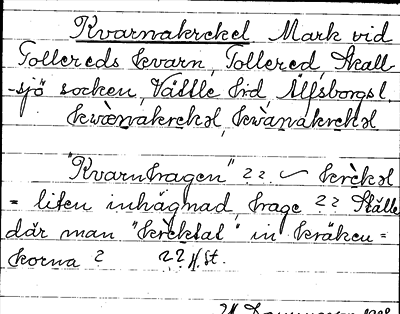 Kvarnakrekel Mark vid
Tollereds kvarn, Tollered, Skall-
-sjö socken, Vättle hd, Älfsborgs l.
kwæ̀nakrekəl, kwànakrekəl
"Kvarnhagen" ?? krèkəl
= liten inhägnad, hage ?? Ställe
där man "krektal" in kräken =
korna ? ?? st.